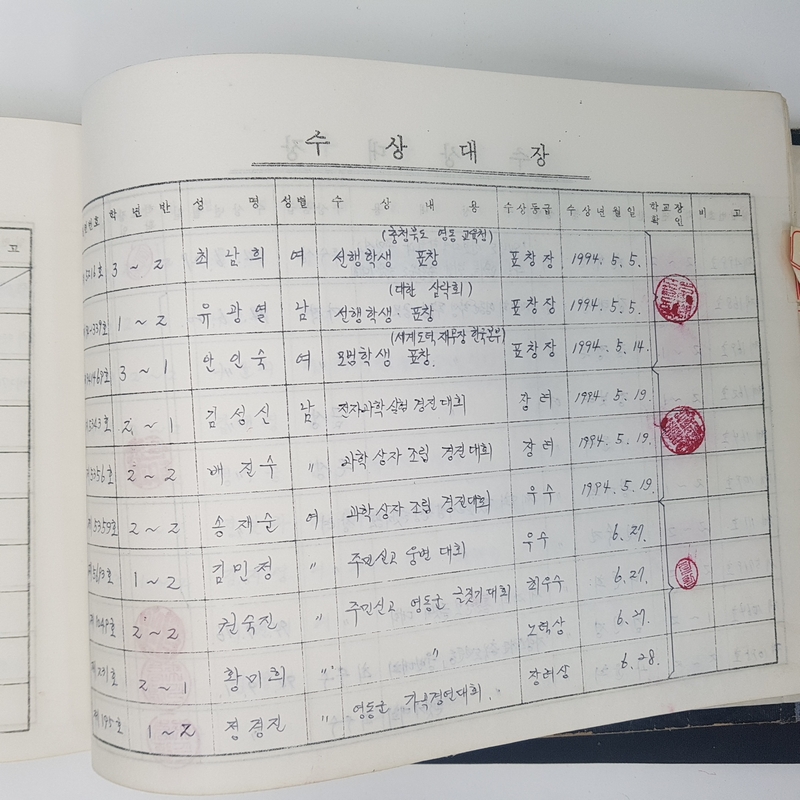 수 상 대 장
번호 학년반 성 명 성별 수 상 내 용 수상등급 수상년월일 학교장 확 인 비 고
고
3~2 최남희 여 (충청북도 영동 교육청) 선행학생 표창 표창장 1994. 5. 5.
1~2 유광열 남 (대한 삼락회) 선행학생 표창 표창장 1994. 5. 5.
3~1 안인숙 여 (세계도덕재무장 한국본부) 모범학생 표창. 표창장 1994. 5. 14.
2~1 김성신 남 전자과학실험 경진대회 장려 1994. 5. 19.
2~2 배진수 〃 과학상자 조립 경진대회 장려 1994. 5. 19.
제5359호 2~2 송재순 여 과학상자 조립 경진대회 우수 1994. 5. 19.
1~2 김민정 〃 주민신고 웅변 대회 우수 6. 27.
2~2 권숙진 〃 주민신고 영동군 글짓기대회 최우수 6. 27.
2~1 황미희 〃 〃 노력상 6. 27.
제195호 1~2 정경진 〃 영동군 가곡경연대회. 장려상 6. 28.